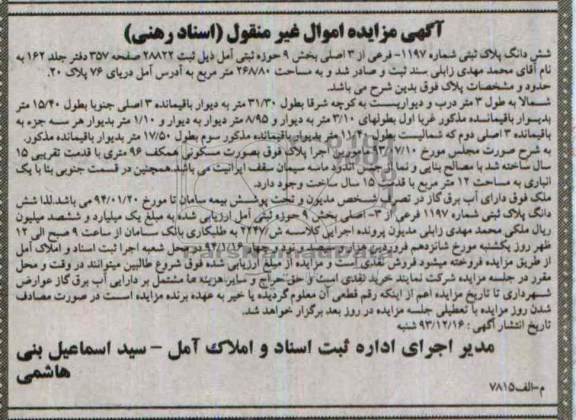 آگهی مزایده اموال غیر منقول (اسناد رهنی)
شش دانگ پلاک ثبتی شماره ۱۱۹۷- فرعی از ۳ اصلی بخش ۹ حوزه ثبتی آمل ذیل ثبت ۲۸۸۲۲ صفحه ۳۵۷ دفتر جلد ۱۶۲ به
نام آقای محمد مهدی زابلی سند ثبت و صادر شد و به مساحت ۲۶۸/۸۰ متر مربع به آدرس آمل دریای ۷۶ پلاک ۲۰.
حدود و مشخصات پلاک فوق بدین شرح می باشد.
شمالا به طول ۳ متر درب و دیواریست به کوچه شرقا بطول ۳۱/۳۰ متر به دیوار باقیمانده ۳ اصلی جنوبا بطول ۱۵/۴۰ متر
بدیوار باقیمانده مذکور غربا اول بطولهای ۳/۱۰ متر به دیوار و ۸/۹۵ متر دیوار به دیوار و ۱/۱۰ متر بدیوار هر سه جزء به
باقیمانده ۳ اصلی دوم که شمالیست بطول ۱۱/۴۰ متر بدیوار باقیمانده مذکور سوم بطول ۱۷/۵۰ متر بدیوار باقیمانده مذکور.
به شرح صورت مجلس مورخ ۹۳/۰۷/۱۰ مامورین اجرا پلاک فوق بصورت مسکونی همکف ۹۶ متری با قدمت تقریبی ۱۵
سال ساخته شد با مصالح بنایی و نمای جسن اندود ماسه سیمان سقف ایرانیت می باشد همچنین در قسمت جنوبی بنا با یک
انباری به مساحت ۱۲ متر مربع با قدمت ۱۵ سال ساخت وجود دارد.
ملک فوق دارای آب برق گاز در تصرف شخص مدیون و تحت پوشش بیمه سامان تا مورخ ۹۴/۰۱/۲۰ می باشد.لذا شش
دانگ پلاک ثبتی شماره ۱۱۹۷ فرعی از ۳- اصلی بخش ۹ حوزه ثبتی آمل ارزیابی شده به مبلغ یک میلیارد و ششصد میلیون
ریال ملکی محمد مهدی زابلی مدیون پرونده اجرایی کلاسه ش/۲۲۴۷ به طلبکاری بانک سامان از ساعت ۹ صبح الی ۱۲
ظهر روز یکشنبه مورخ شانزدهم فروردین هزار سیصد و نود و چهار ۹۴/۱/۱۶ در محل شعبه اجرا ثبت اسناد و املاک آمل
از طریق مزایده فروخته میشود فروش نقدی است و مزایده از مبلغ ارزیابی شده فوق شروع طالبین میتوانند در وقت و محل
مقرر در جلسه مزایده شرکت نمایند خرید نقدی است و حق حراج و سایر هزینه ها مشتمل بر دارایی آب برق گاز عوارض
شهرداری تا تاریخ مزایده اعم از اینکه رقم قطعی آن معلوم گردیده یا خیر به عهده برنده مزایده است در صورت مصادف
شدن روز مزایده با تعطیلی جلسه مزایده در روز بعد برگزار خواهد شد.
تاریخ انتشار آگهی : ۹۳/۱۲/۱۶ شنبه
مدیر اجرای اداره ثبت اسناد و املاک آمل – سید اسماعیل بنی
هاشمی
م-الف ۷۸۱۵